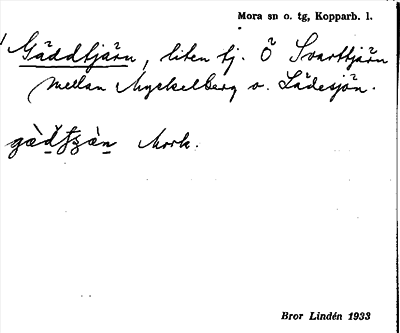 Mora sn o. tg, Kopparb. l.
Gäddtjärn, liten tj. Ö Svarttjärn
mellan Myckelberg o. Lädesjön.
Mork.
Bror Lindén 1933